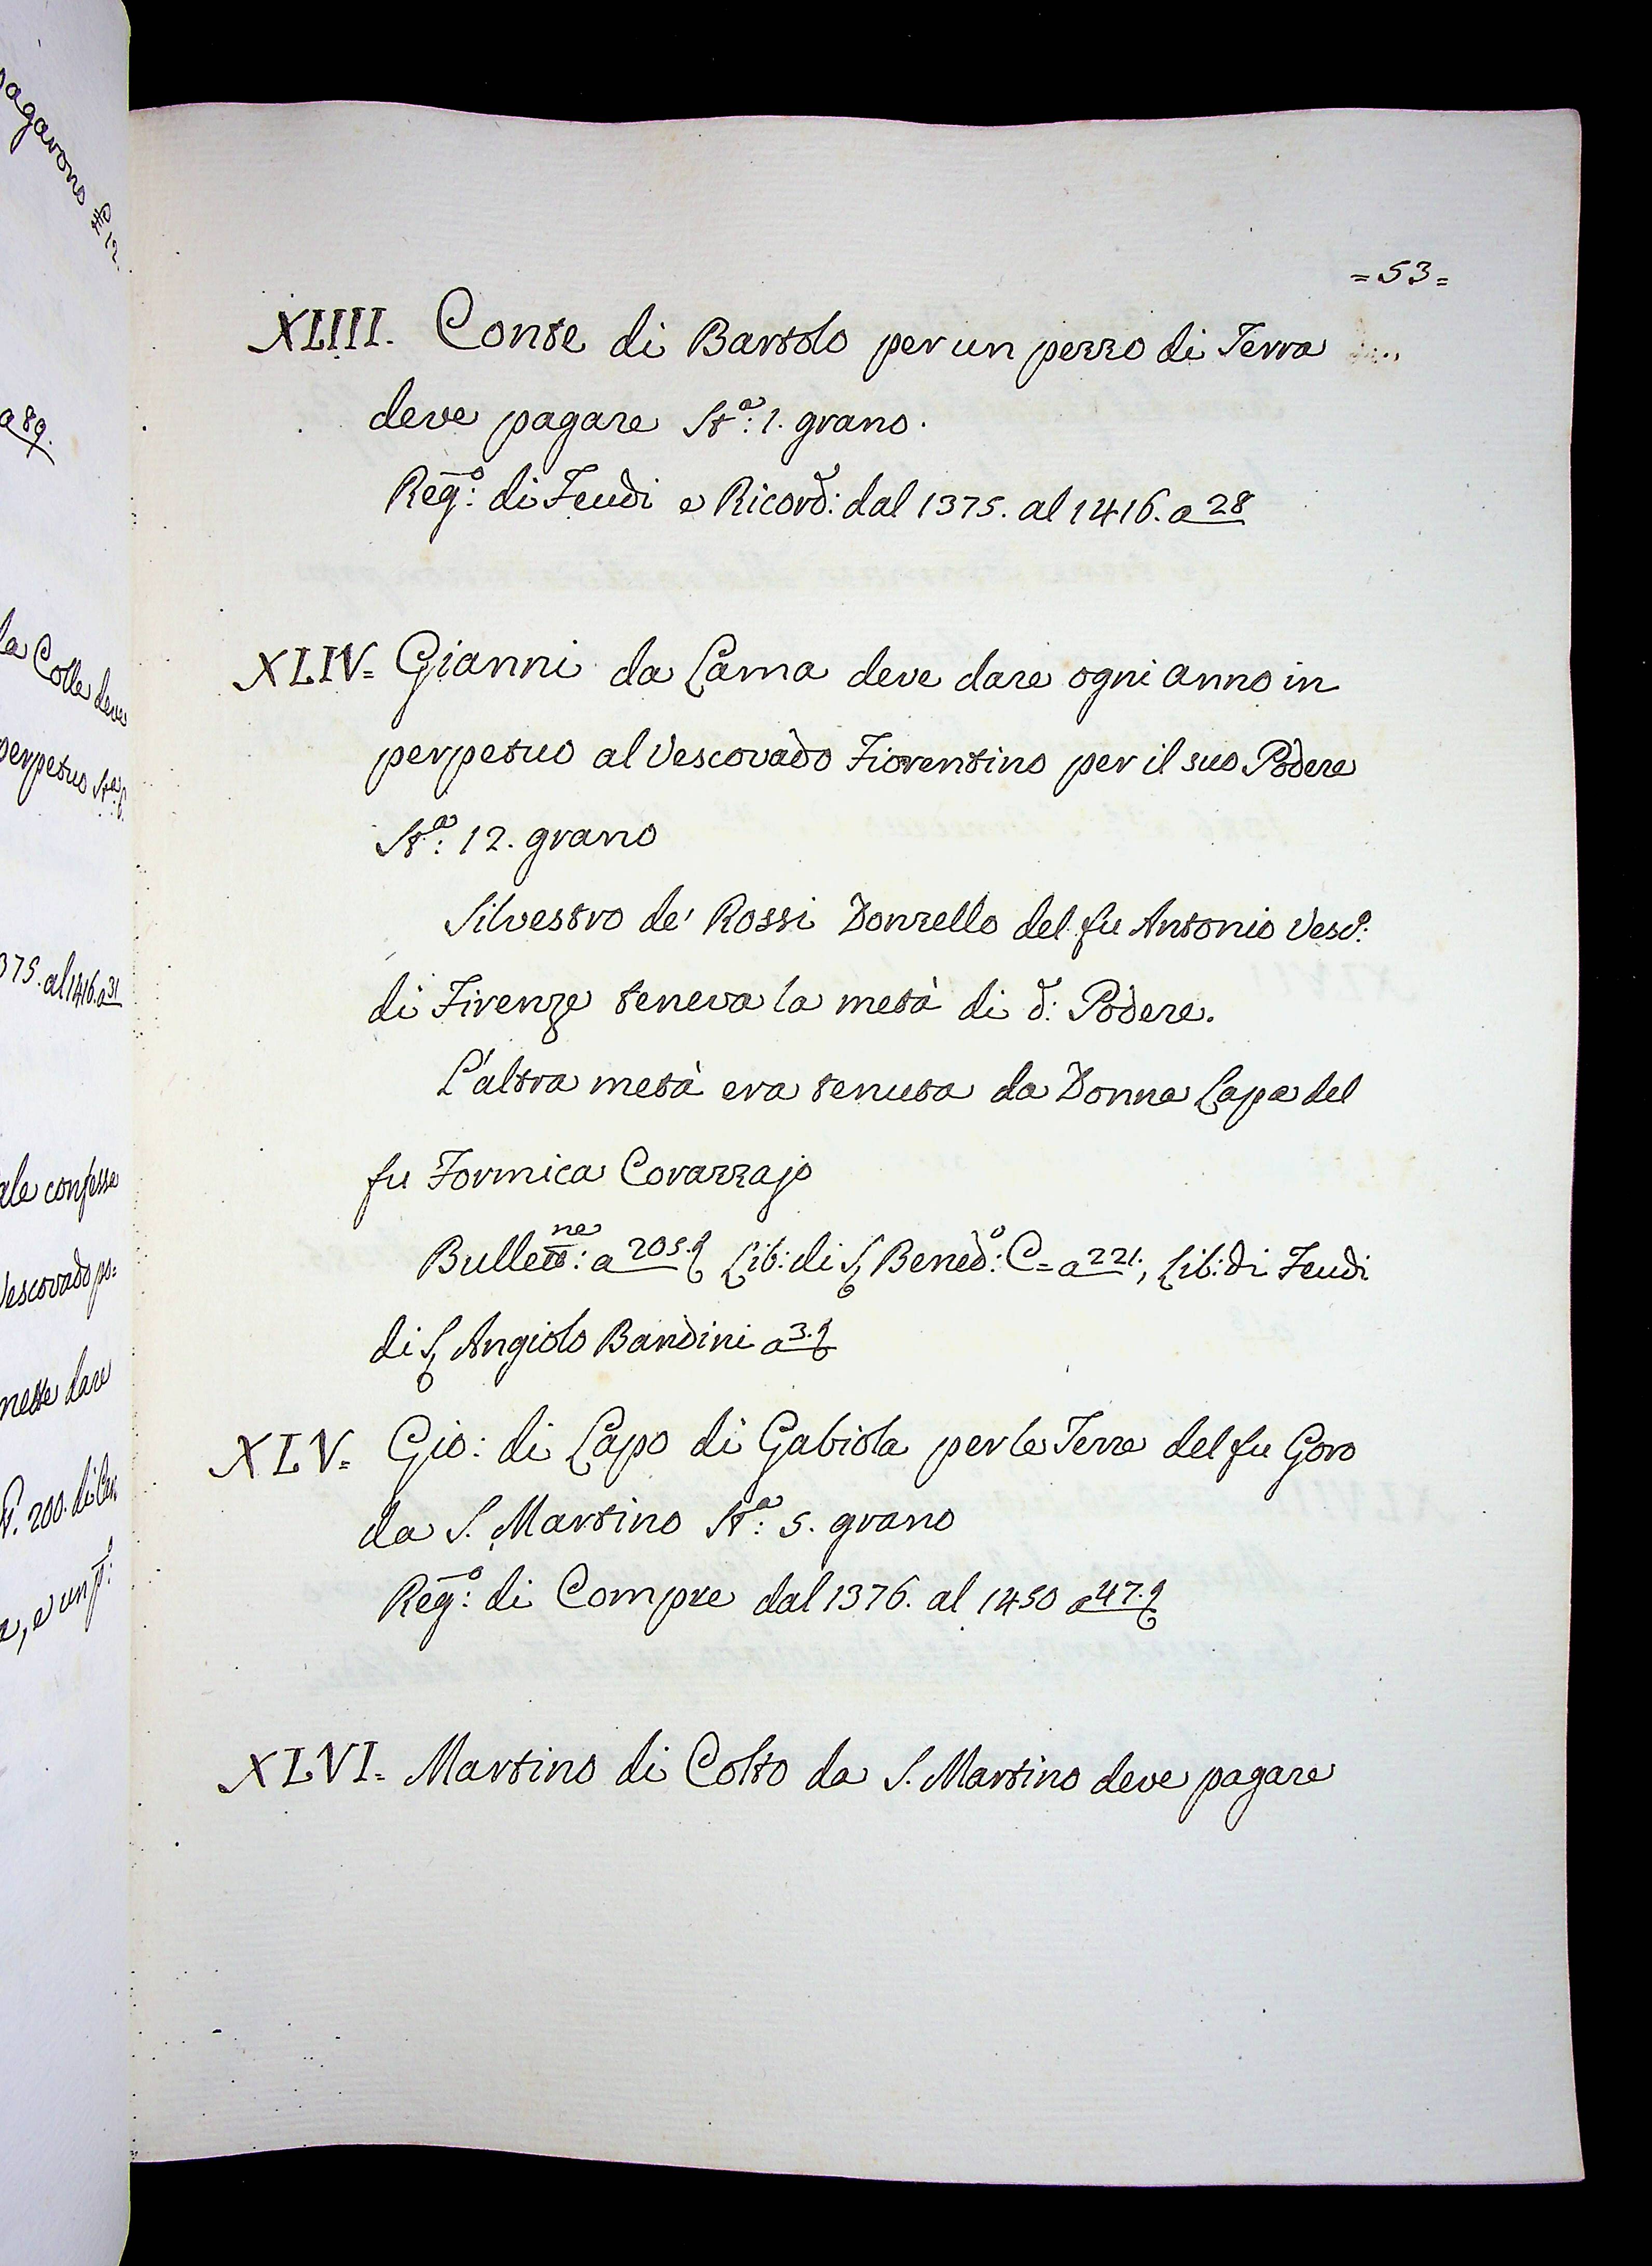 pagarono ₶ 12.
a 89.
la Colle deve
perpetuo Sta: 6.
375. al 1416. a 31
ale confesse
Vescovado po=
mette dare
200. di
a, e un p:o
=53=
XLIIII. Conte di Bartolo per un pezzo di Terra
deve pagare Sta: 1. grano.
Rego: di Feudi e Ricord: dal 1375. al 1416. a 28
XLIV= Gianni da Lama deve dare ogni anno in
perpetuo al Vescovado Fiorentino per il suo Podere
Sta: 12. grano
Silvestro de' Rossi Donzello del fu Antonio Vesco:
di Firenze teneva la metà di d: Podere.
L'altra metà era tenuta da Donna Lapa del
fu Formica Corazzajo
Bullettne: a 205. Lib: di S. Benedo: C= a 221., Lib: di Feudi
di S. Angiolo Bandini a 3.
XLV= Gio: di Lapo di Gabiola per le Terre del fu Goro
da S. Martino Sta: 5. grano
Rego: di Compre dal 1376. al 1450 a 47.
XLVI= Martino di Colto da S. Martino deve pagare